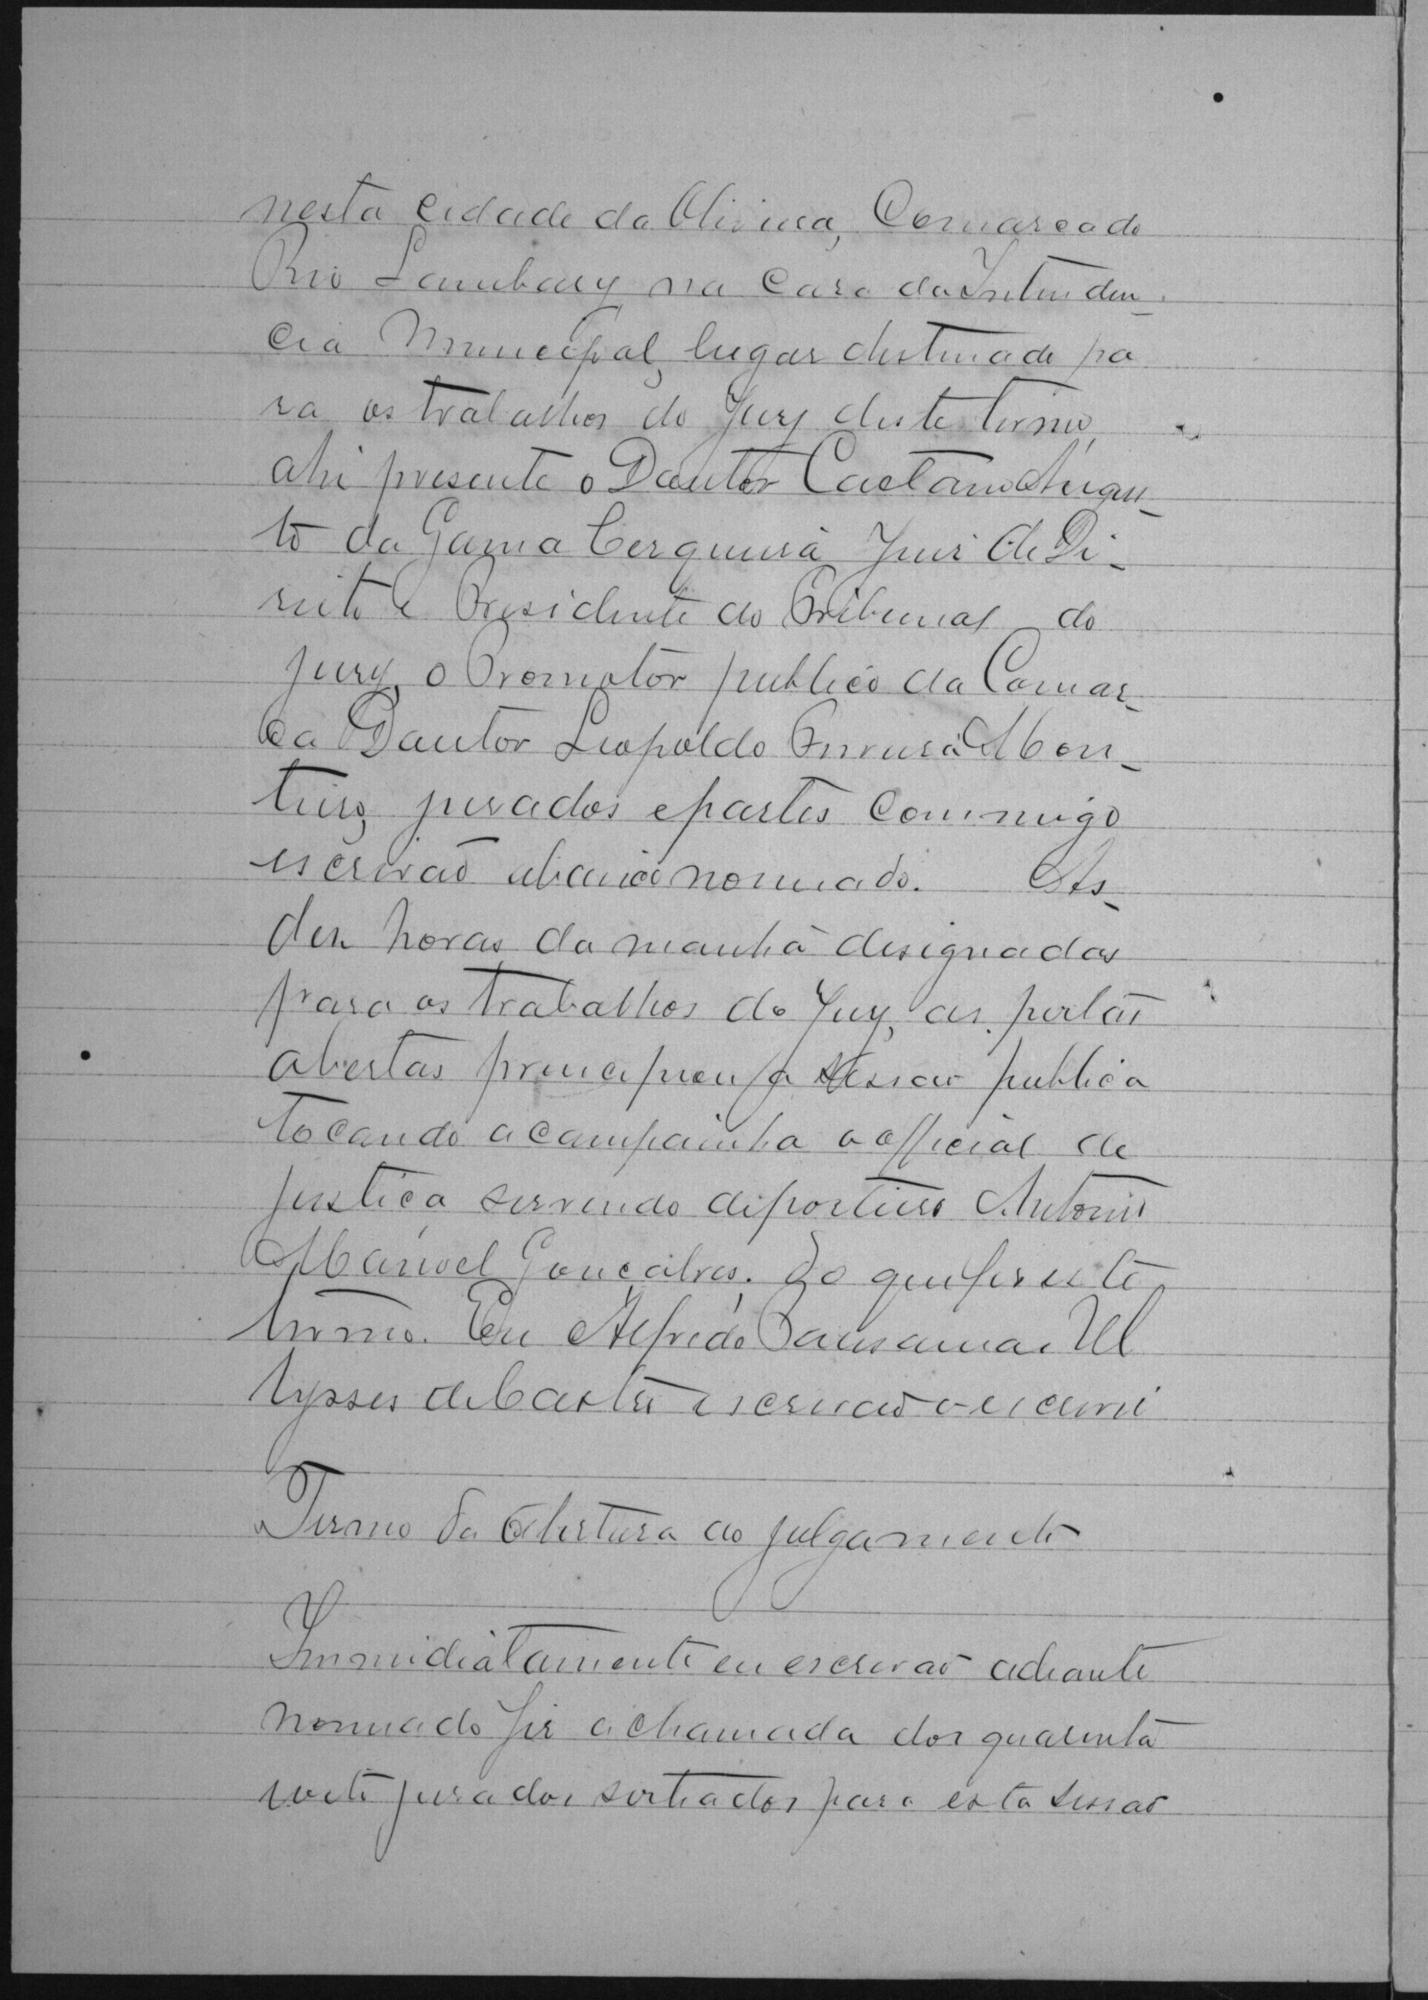 nesta cidade da Oliveira, Comarca do
Rio Lambary na casa da Intenden-
cia Municipal, lugar destinado pa
ra os trabalhos do Jury deste termo,
ahi presente o Doutor Caetano Augus-
to da Gama Cerqueira Juiz de Di-
reito e Presidente do Tribunal do
Jury, o Promotor publico da Comar-
ca Doutor Leopoldo Ferreira Mon-
teiro, jurados e partes commigo
escrivão abaixo nomeado. As
dez horas da manhã designadas
para os trabalhos do Jury, as portas
abertas principiou a sessão publica
tocando a campainha o official de
justiça servindo de porteiro Antonio
Manoel Gonçalves. Do que fiz este
termo. Eu Alfredo Pausanias Ul
lysses de Castro escrivão o escrevi
Termo da abertura do julgamento
Immediatamente eu escrivão adiante
nomeado fiz a chamada dos quarenta
oito jurados sorteados para esta sessão